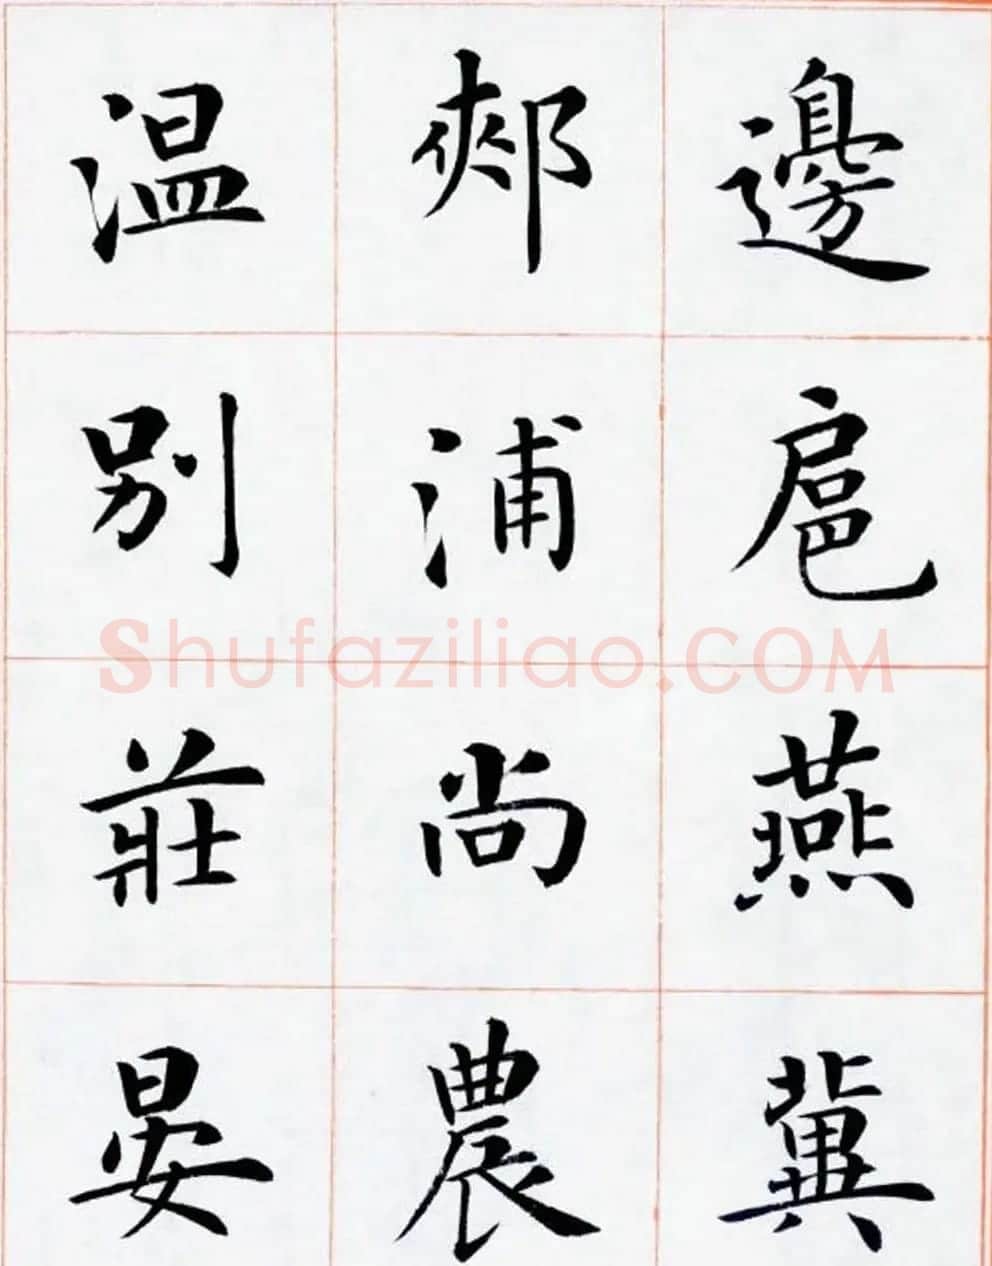 邊扈燕冀
郟浦尚農
温别莊晏
Shufaziliao.COM